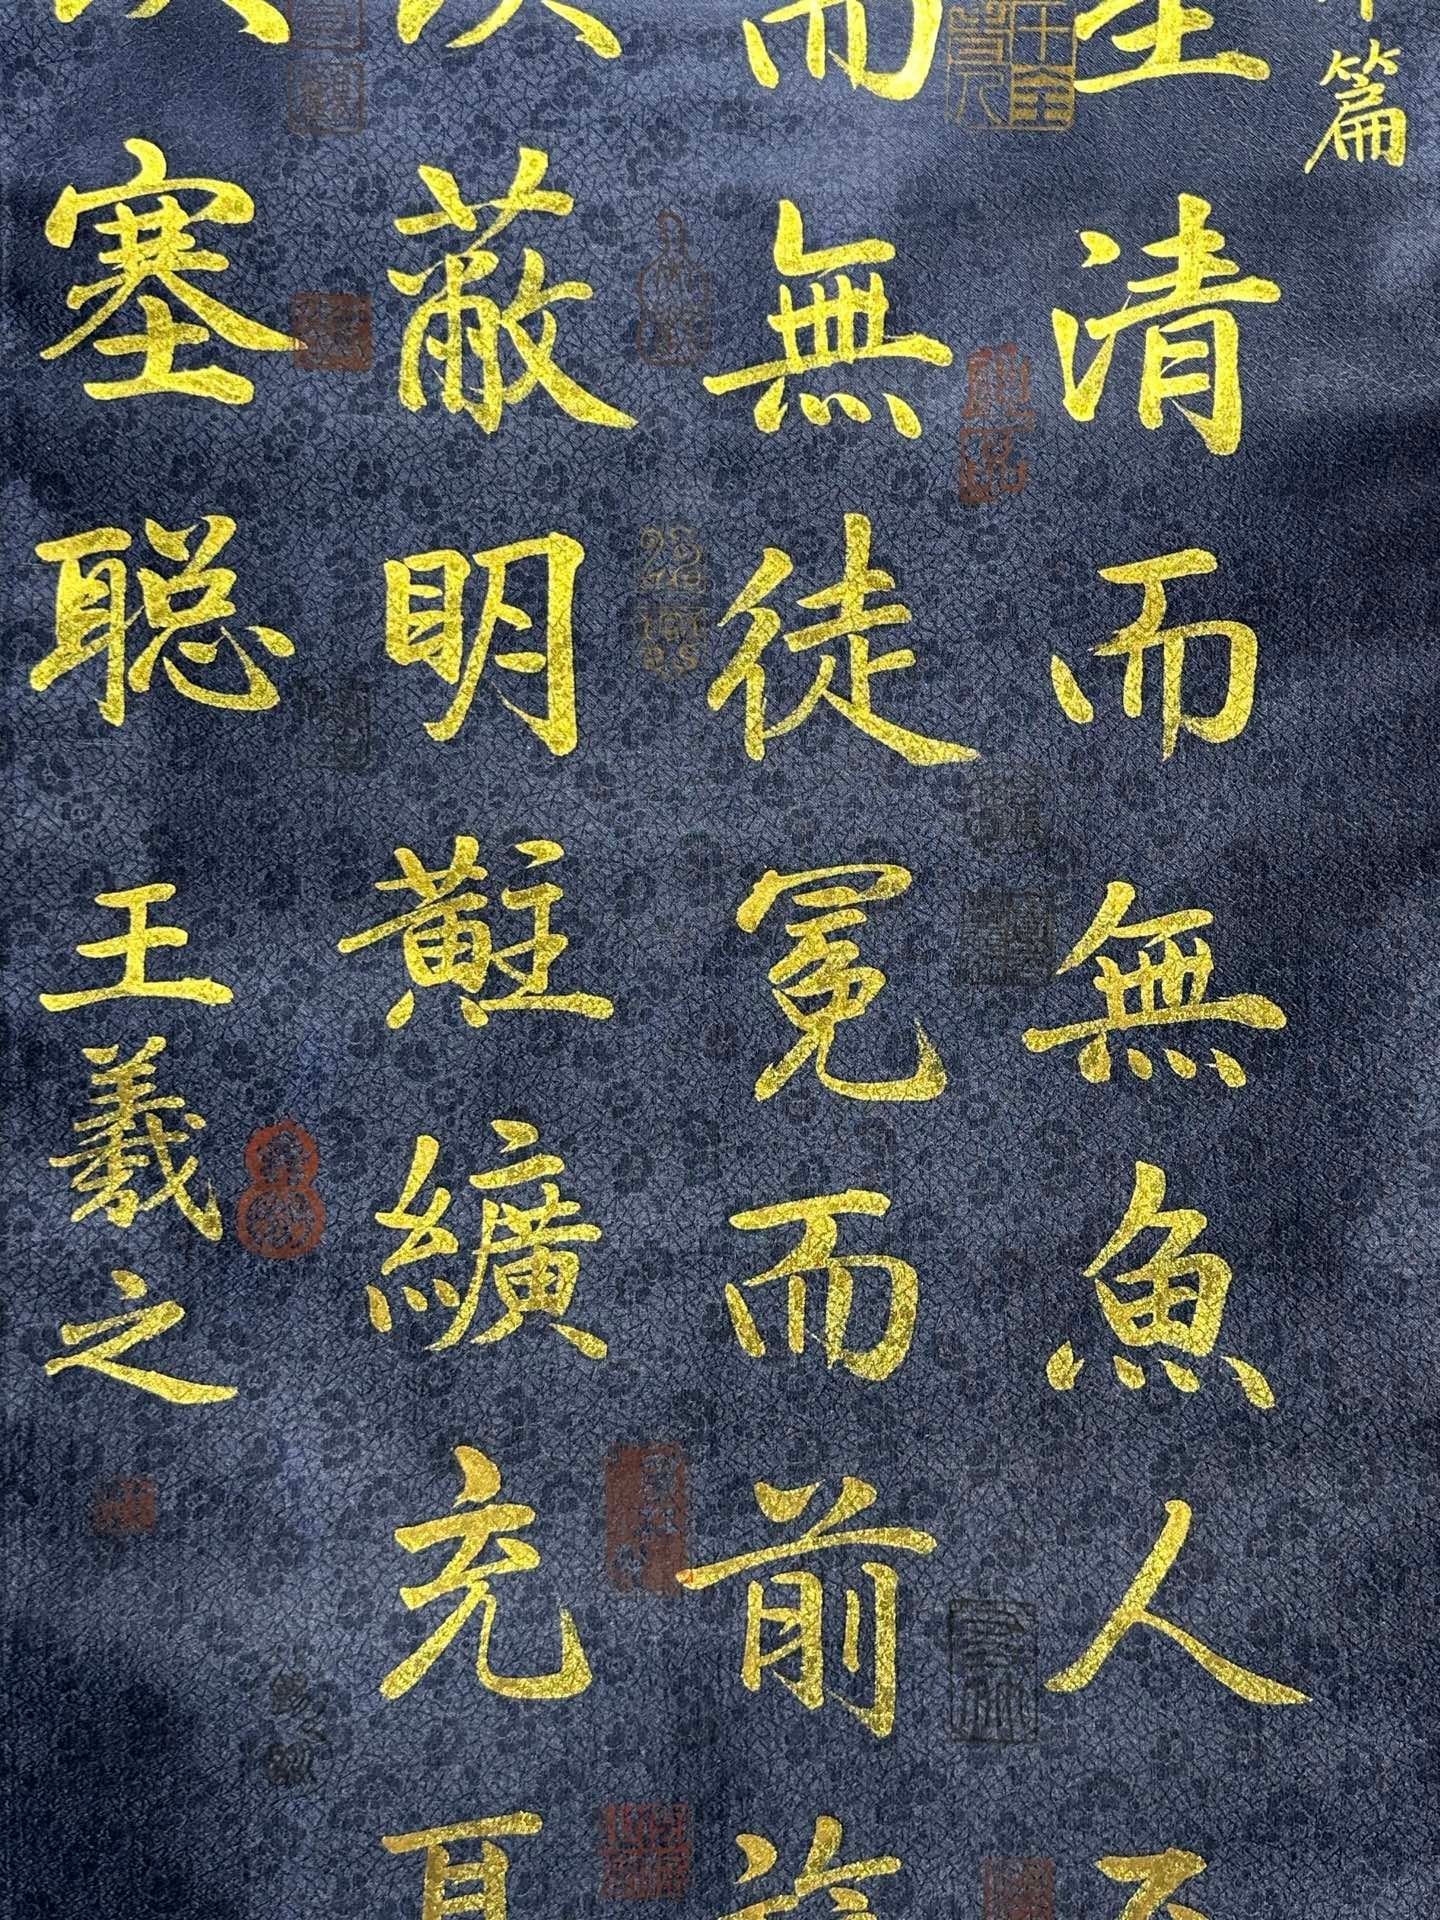 篇
至清而無魚人
而無徒冕而前
蔽明黈纊充耳
塞聪王羲之